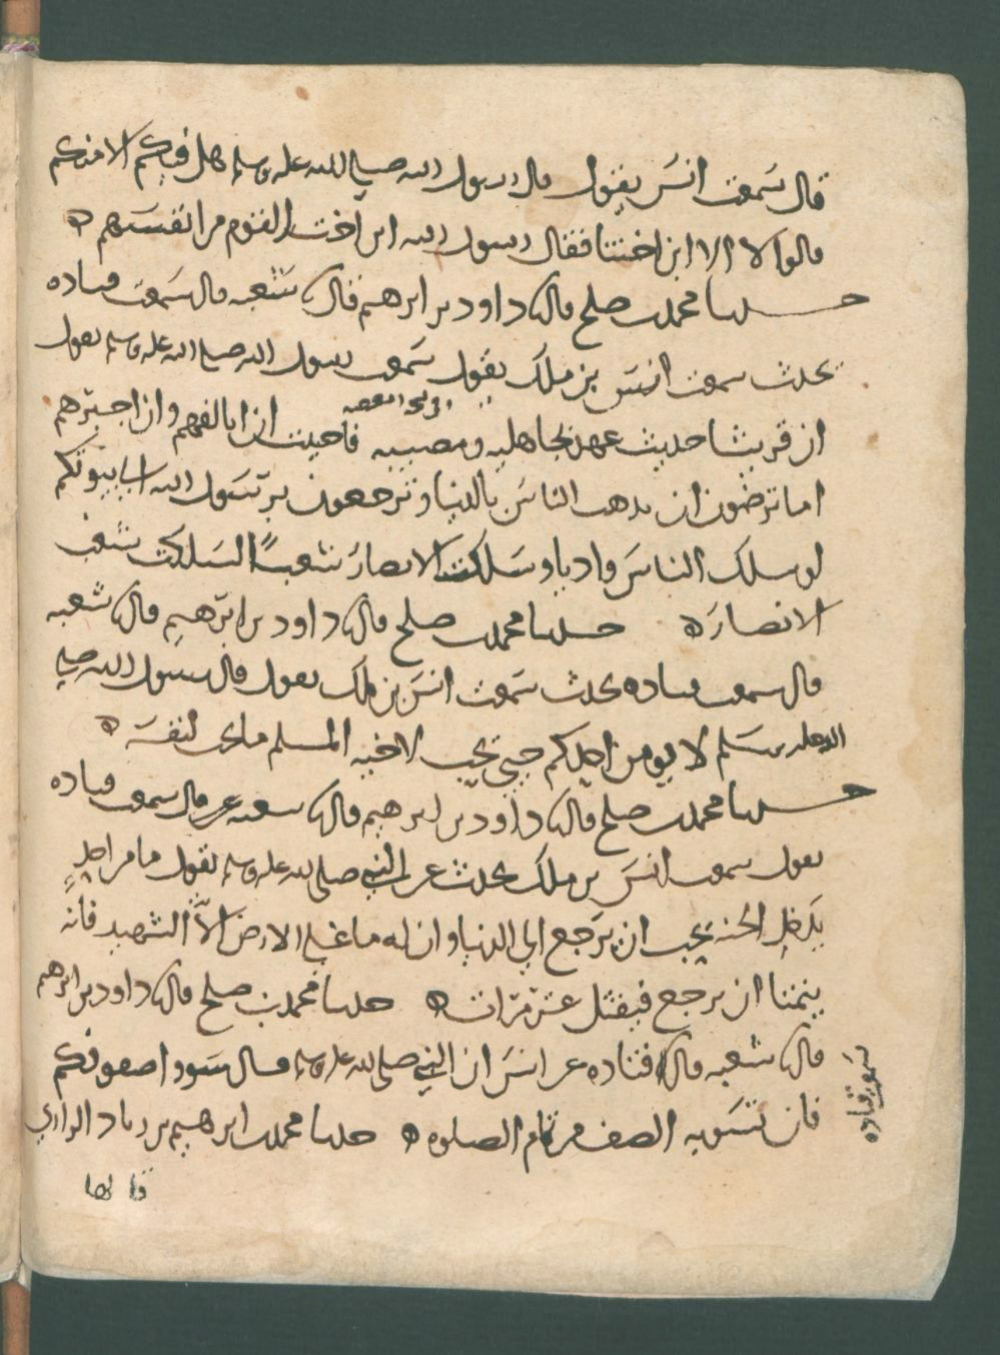 قال سمعت انس يقول قال رسول الله صلى الله عليه وسلم هل فيكم الا منكم
قالوا لا الا ابن اختنا فقال رسول الله ابن اخت القوم من انفسهم ه
حدثنا محمد بن صلح قال داود بن ابرهيم قال شعبه قال سمعت قتاده
يحدث سمعت انس بن ملك يقول سمعت رسول الله صلى الله عليه وسلم يقول
ان قريشا حديث عهد بجاهليه ومصيبه فاحببت ان اتالفهم وان اجبرهم
اما ترضون ان يذهب الناس بالدنيا وترجعون برسول الله الى بيوتكم
لو سلك الناس واديا وسلكت الانصار شعبا لسلكت شعب
الانصار ه حدثنا محمد بن صلح قال داود بن ابرهيم قال شعبه
قال سمعت قتاده يحدث سمعت انس بن ملك يقول قال رسول الله صلى
الله عليه وسلم لا يومن احدكم حتى يحب لاخيه المسلم ما لنفسه ه
حدثنا محمد بن صلح قال داود بن ابرهيم قال شعبه قال سمعت قتاده
يقول سمعت انس بن ملك يحدث عن النبي صلى الله عليه وسلم يقول ما من احد
يدخل الجنه يحب ان يرجع الى الدنيا وان له ما على الارض الا الشهيد فانه
يتمنا ان يرجع فيقتل عشر مرات ه حدثنا محمد بن صلح قال داود بن ابرهيم
قال شعبه قال قتاده عن انس ان النبي صلى الله عليه وسلم قال سووا صفوفكم
فان تسويه الصف من تمام الصلوه ه حدثنا محمد بن ابرهيم بن زياد الرازي